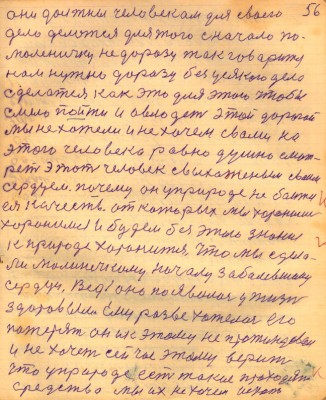 они должны человекам для своего 56
дело делотся для того сначало по-
моленичку не доразу так говариту
нам нужно доразу без усякого дело
сделатся как это для этого чтобы
смело пойти и овлодет этой дорогой
мы не хотели и не хочем свами на
этого человека равно душно смот-
рет этот человек
сердцем. почему он уприроде не боится
ея качеств. от которых мы хоронили
хоронимся и будем без этого знания
к природе хоронится. Что мы сдела-
ли малинькому началу заболевшому
сердцу, Ведь оно появилося у жизни
здоровым Ему разве хотелося его
потерят он их этому не противодовал
и не хочет сейчас этому верит
что уприроде ест такие проходят
средство мы их не хочем искат